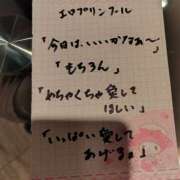 エロプリンクール
「今日は、いいかなぁ〜」
「もちろん」
「めちゃくちゃ愛して
ほしい」
「いっぱい愛して
あげるょ」